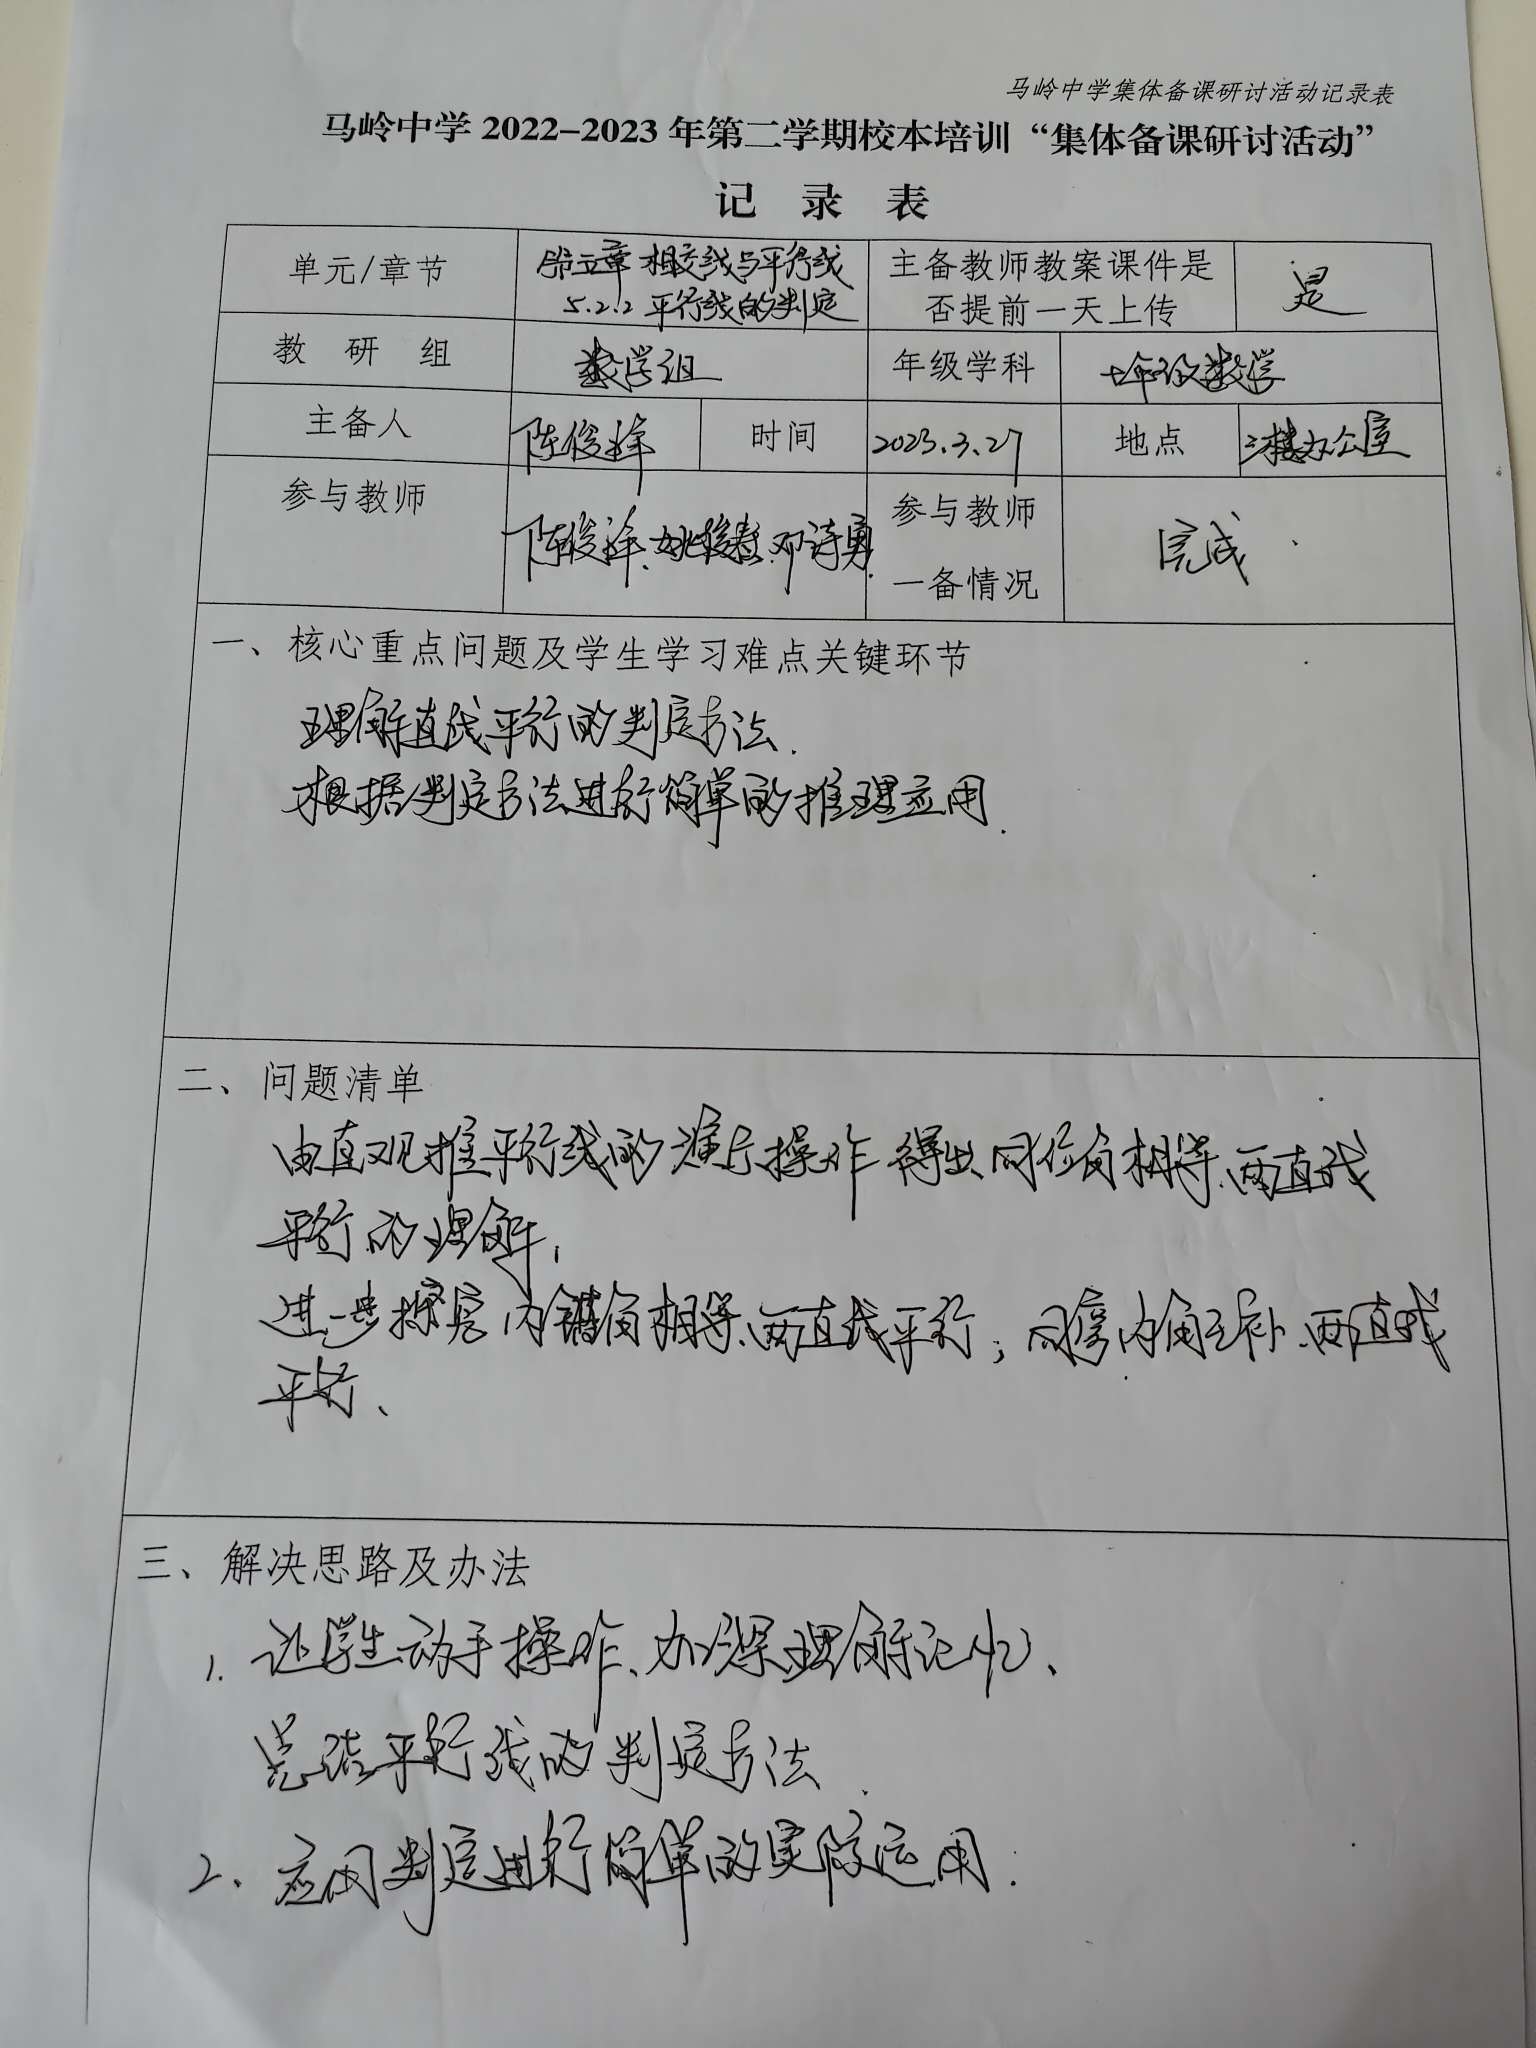 马岭中学集体备课研讨活动记录表
马岭中学 2022-2023 年第二学期校本培训“集体备课研讨活动”
记 录 表
单元/章节 第五章 相交线与平行线 主备教师教案课件是 是
5.2.2 平行线的判定 否提前一天上传
教 研 组 数学组 年级学科 七年级数学
主备人 陈俊 时间 2023.3.27 地点 三楼办公室
参与教师 陈俊 邓诗勇 参与教师 完成
一备情况
一、核心重点问题及学生学习难点关键环节
理解直线平行的判定方法.
根据判定方法进行简单的推理应用.
二、问题清单
由直观推平行线的演示操作 得出同位角相等、两直线
平行的理解,
进一步探究内错角相等、两直线平行; 同旁内角互补、两直线
平行、
三、解决思路及办法
1. 让学生动手操作、加深理解记忆、
总结平行线的判定方法.
2、应用判定进行简单的实际运用.